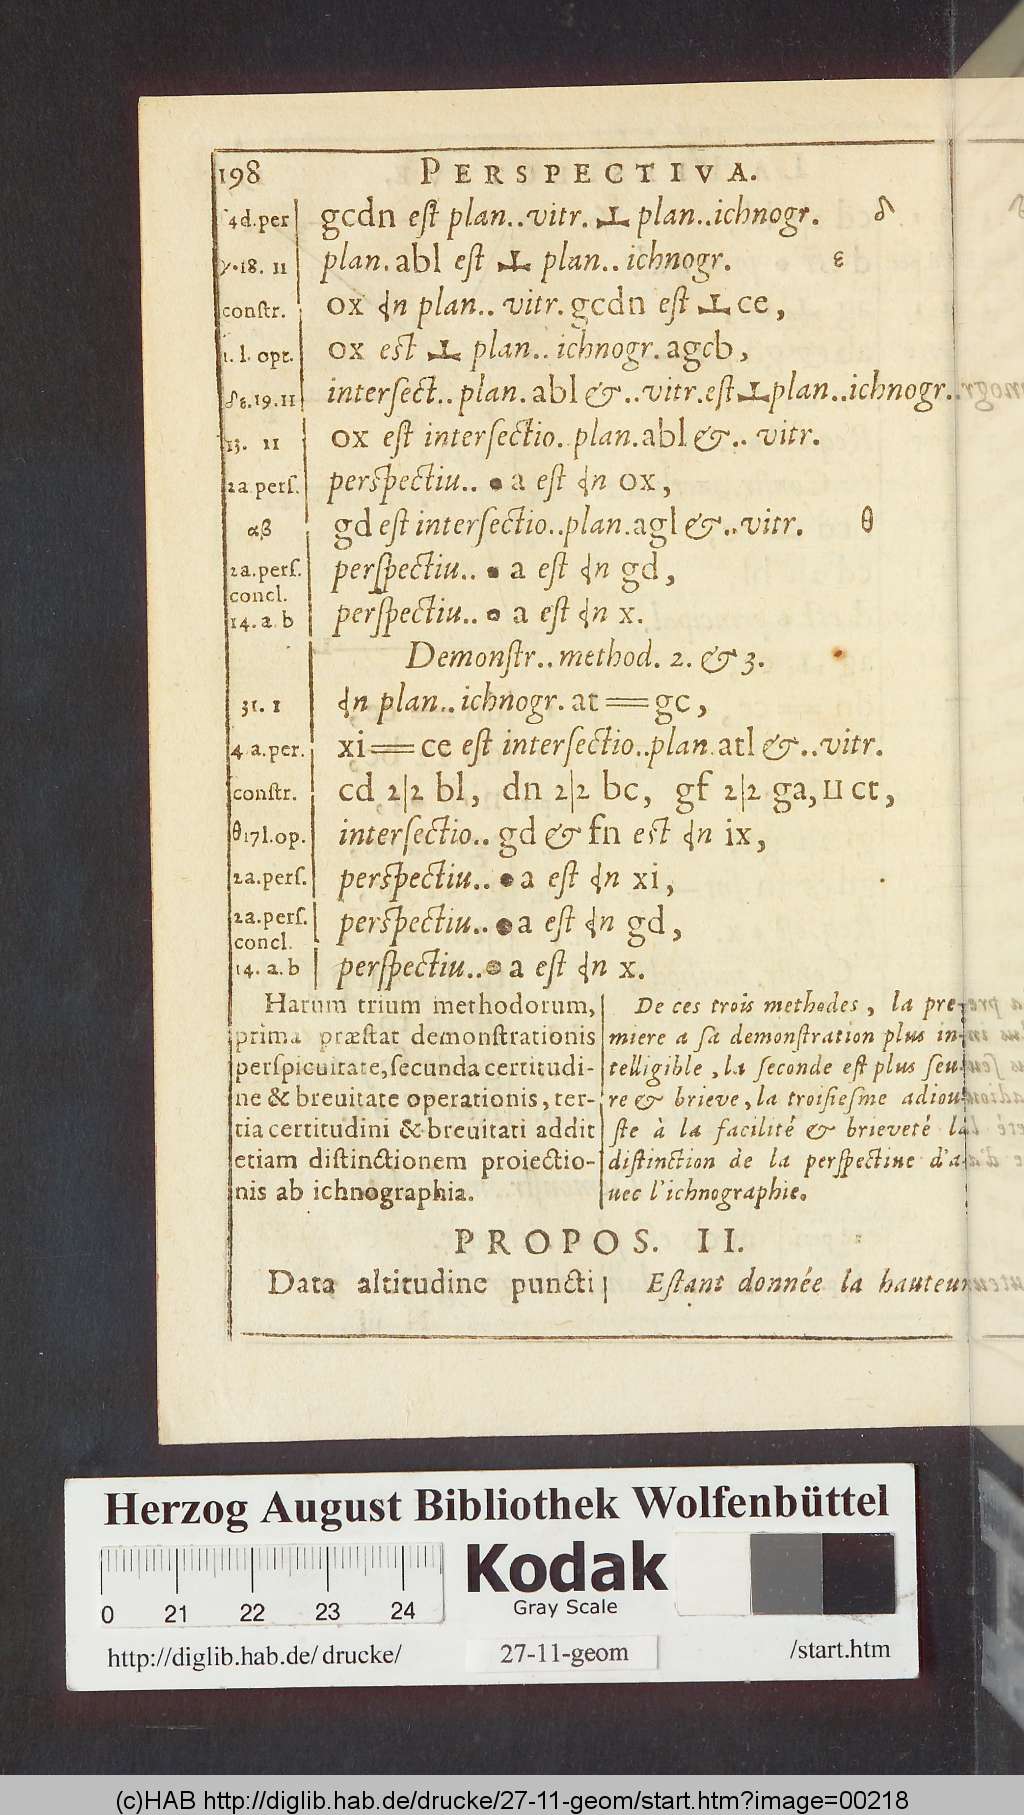 198 PERSPECTIVA.
4d.per gcdn est plan..vitr. ⊥ plan..ichnogr. δ
γ.18. 11 plan. abl est ⊥ plan.. ichnogr. ε
constr. ox in plan.. vitr. gcdn est ⊥ ce,
1. l. opt. ox est ⊥ plan.. ichnogr. agcb,
δε.19.11 intersect.. plan. abl &..vitr. est ⊥ plan..ichnogr..
13. 11 ox est intersectio. plan. abl &.. vitr.
2a pers. perspectiu.. • a est in ox,
αβ gd est intersectio..plan. agl &..vitr. θ
2a.pers. perspectiu.. • a est in gd,
concl.
14. a b perspectiu.. • a est in x.
Demonstr.. method. 2. & 3.
31. 1 in plan.. ichnogr. at == gc,
4 a.per. xi == ce est intersectio..plan. atl &..vitr.
constr. cd 2|2 bl, dn 2|2 bc, gf 2|2 ga, II ct,
θ17l.op. intersectio.. gd & fn est in ix,
2a.pers. perspectiu.. • a est in xi,
2a.pers. perspectiu.. • a est in gd,
concl.
14. a. b perspectiu.. • a est in x.
Harum trium methodorum,
prima præstat demonstrationis
perspicuitate, secunda certitudi-
ne & breuitate operationis, ter-
tia certitudini & breuitati addit
etiam distinctionem proiectio-
nis ab ichnographia.
De ces trois methodes, la pre-
miere a sa demonstration plus in-
telligible, la seconde est plus seu-
re & brieve, la troisiesme adiou-
ste à la facilité & brieveté la
distinction de la perspective d'a-
uec l'ichnographie.
PROPOS. II.
Data altitudine puncti
Estant donnée la hauteur
Herzog August Bibliothek Wolfenbüttel
0 21 22 23 24
Kodak
Gray Scale
http://diglib.hab.de/drucke/ 27-11-geom /start.htm
(c)HAB http://diglib.hab.de/drucke/27-11-geom/start.htm?image=00218